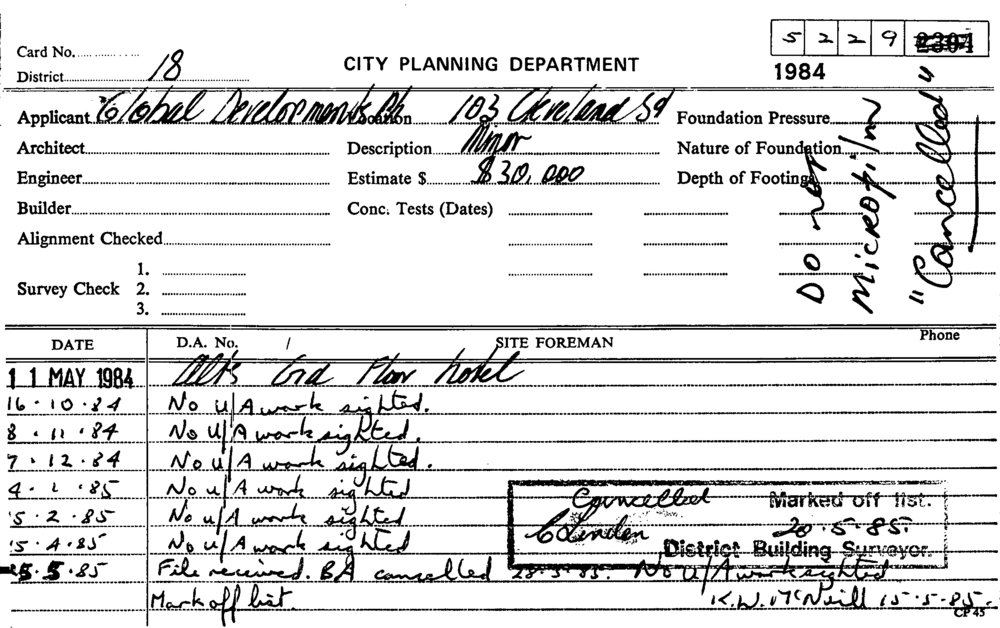 5 2 2 9 2304
Card No.
District 18
CITY PLANNING DEPARTMENT
1984
Applicant Global Developments P/L Location 103 Cleveland St Foundation Pressure
Architect Description Minor Nature of Foundation
Engineer Estimate $ $30,000 Depth of Footings
Builder Conc. Tests (Dates)
Alignment Checked
Do not
Microfilm
"Cancelled"
1.
Survey Check 2.
3.
DATE D.A. No. / SITE FOREMAN Phone
11 MAY 1984 Alts Grd Floor hotel
16.10.84 No U/A work sighted.
8.11.84 No U/A work sighted.
7.12.84 No U/A work sighted.
4.1.85 No U/A work sighted
5.2.85 No U/A work sighted
15.4.85 No U/A work sighted
Cancelled Marked off list.
C Linden 20.5.85.
District Building Surveyor.
5.5.85 File received. BA cancelled No U/A work sighted
Mark off list. K.W. McNeill 15-5-85.
CP 45